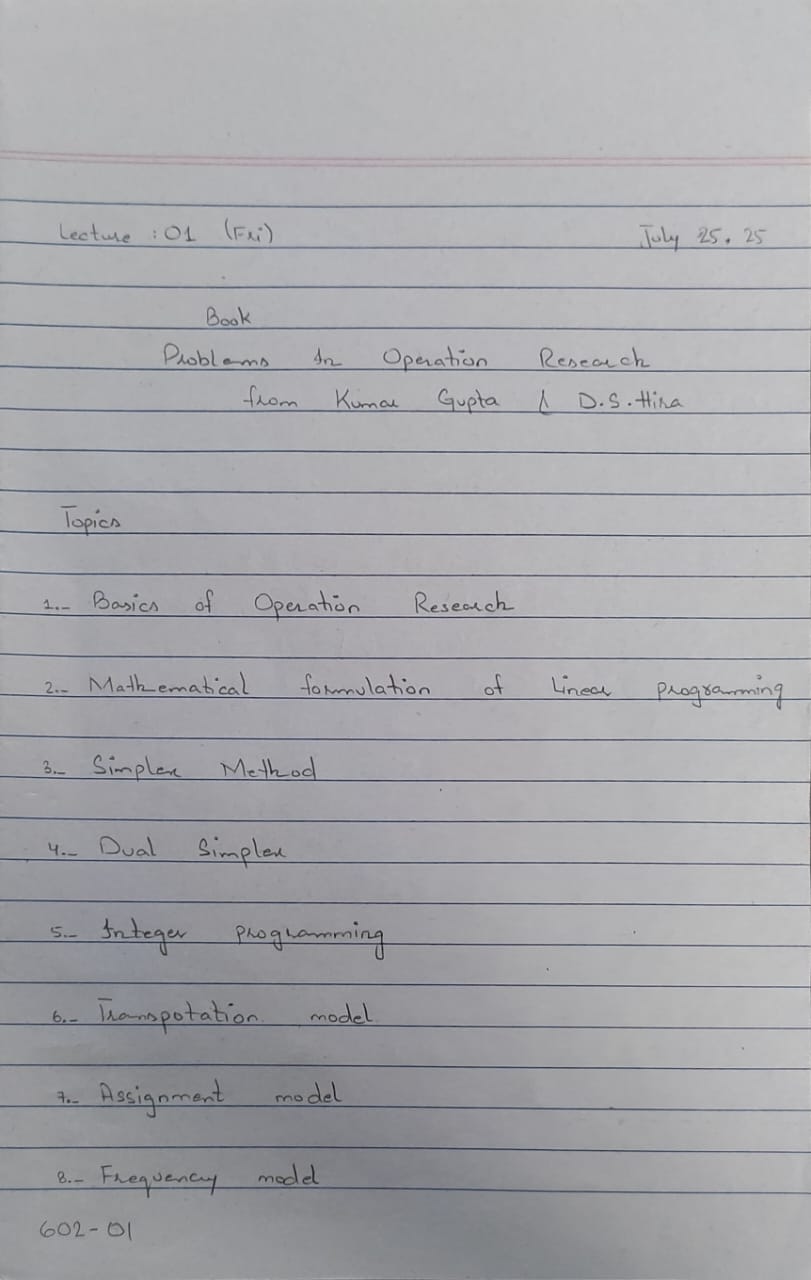 Lecture : 01 (Fri) July 25. 25
Book
Problems In Operation Research
from Kumar Gupta & D.S. Hira
Topics
1.- Basics of Operation Research
2.- Mathematical formulation of Linear programming
3.- Simplex Method
4.- Dual Simplex
5.- Integer programming
6.- Transpotation model
7.- Assignment model
8.- Frequency model
602-01